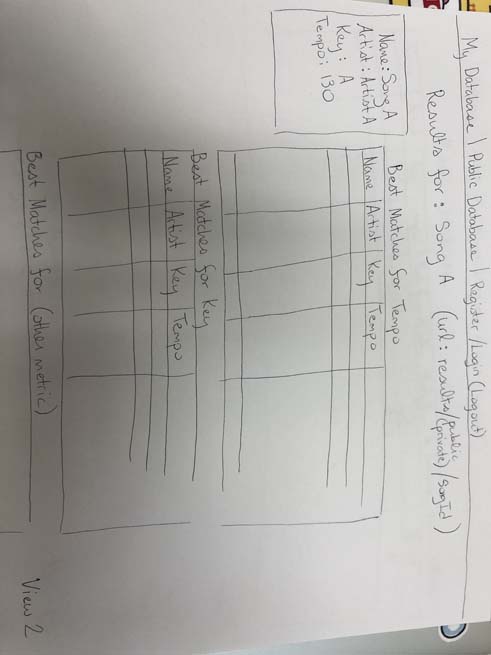 My Database | Public Database | Register/Login (Logout)
Results for: Song A (url: results/public/(private)/songId)
Name: Song A
Artist: Artist A
Key: A
Tempo: 130
Best Matches for Tempo
Name | Artist | Key | Tempo
Best Matches for Key
Name | Artist | Key | Tempo
Best Matches for (other metric)
View 2